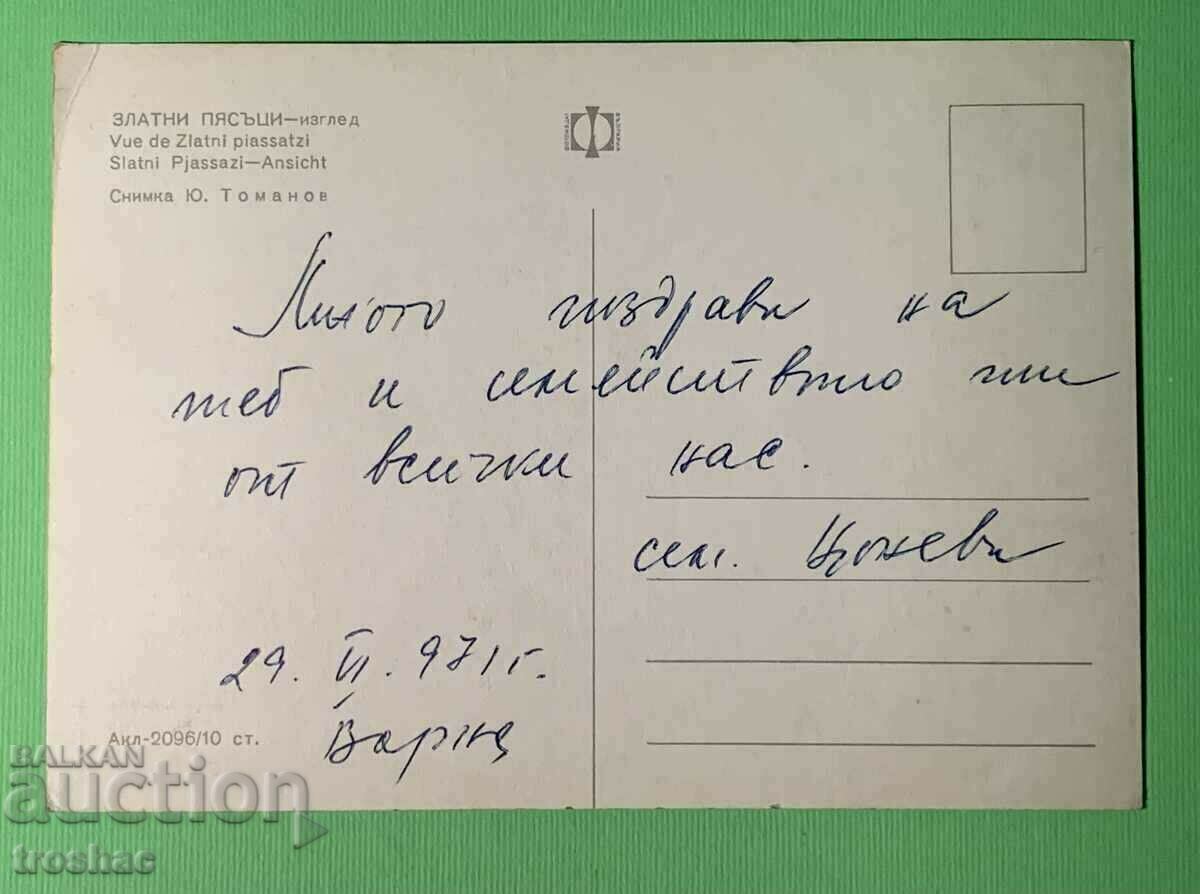 ЗЛАТНИ ПЯСЪЦИ—изглед
Vue de Zlatni piassatzi
Slatni Pjassazi—Ansicht
Снимка Ю. Томанов
поздрави на
теб и семейството ти
от всички нас.
сем. Цоневи
29. VI. 971 г.
Варна
Акл-2096/10 ст.
BALKAN
auction
troshac